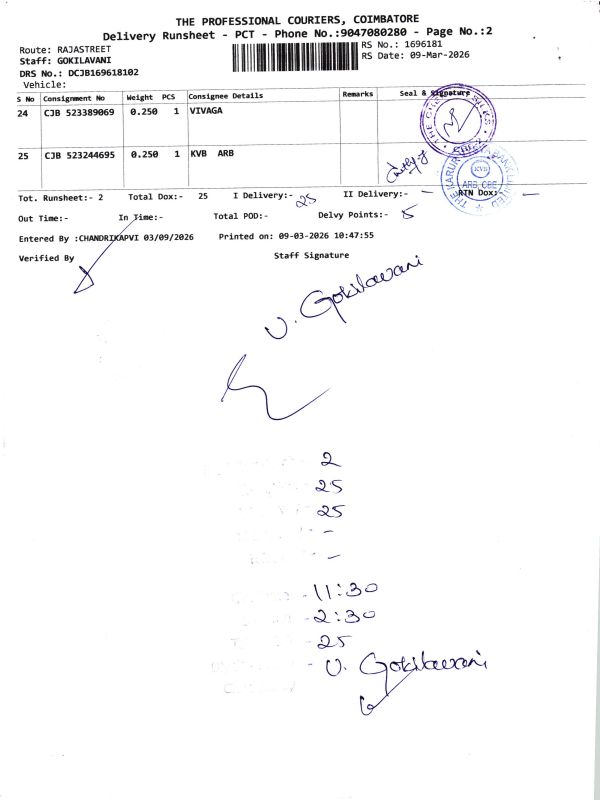 THE PROFESSIONAL COURIERS, COIMBATORE
Delivery Runsheet - PCT - Phone No.:9047080280 - Page No.:2
Route: RAJASTREET
Staff: GOKILAVANI
DRS No.: DCJB169618102
Vehicle:
RS No.: 1696181
RS Date: 09-Mar-2026
S No Consignment No Weight PCS Consignee Details Remarks Seal & Signature
24 CJB 523389069 0.250 1 VIVAGA
25 CJB 523244695 0.250 1 KVB ARB
KVB
ARB, CBE
Tot. Runsheet:- 2 Total Dox:- 25 I Delivery:- 25 II Delivery:- - RTN Dox:- -
Out Time:- In Time:- Total POD:- Delvy Points:- 5
Entered By :CHANDRIKAPVI 03/09/2026 Printed on: 09-03-2026 10:47:55
Verified By Staff Signature
U. Gokilavani
2
25
25
-
-
- 11:30
- 2:30
- 25
- U. Gokilavani